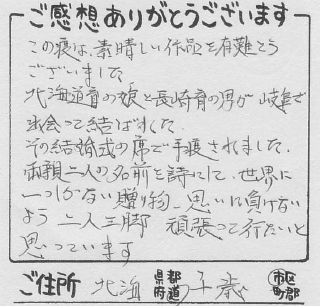 ご感想ありがとうございます
この度は、素晴しい作品を有難とう
ございました
北海道育の娘と長崎育の男が岐阜で
出会って結ばれました
その結婚式の席で手渡されました。
両親二人の名前を詩にして、世界に
一つしかない贈り物、思いに負けない
よう 二人三脚 頑張って行たいと
思っています
ご住所 北海 都道府県 千歳 市区町郡